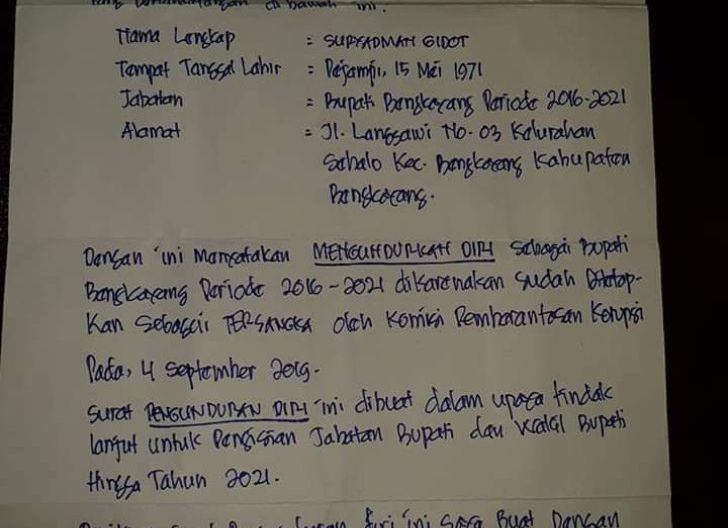 yang bertandatangan di bawah ini.
Nama Lengkap : SURYADMAN GIDOT
Tempat Tanggal Lahir : Pejampi, 15 Mei 1971
Jabatan : Bupati Bengkayang Periode 2016-2021
Alamat : Jl. Langsawi No. 03 Kelurahan
Sebalo Kec. Bengkayang Kabupaten
Bengkayang.
Dengan ini Menyatakan MENGUNDURKAN DIRI sebagai Bupati
Bengkayang Periode 2016-2021 dikarenakan sudah Ditetap-
Kan Sebagai TERSANGKA oleh Komisi Pemberantasan Korupsi
Pada, 4 September 2019.
Surat PENGUNDURAN DIRI ini dibuat dalam upaya tindak
lanjut untuk Pengisian Jabatan Bupati dan Wakil Bupati
Hingga Tahun 2021.
diri ini saya Buat Dengan